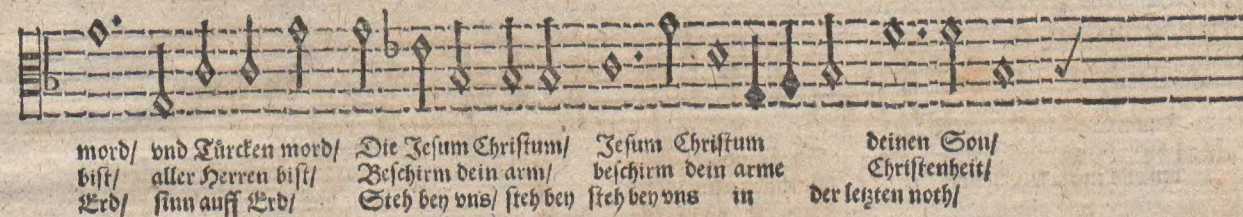 mord/ vnd Türcken mord/ Die Jesum Christum/ Jesum Christum deinen Son/
bist/ aller Herren bist/ Beschirm dein arm/ beschirm dein arme Christenheit/
Erd/ sinn auff Erd/ Steh bey vns/ steh bey steh bey vns in der letzten noth/